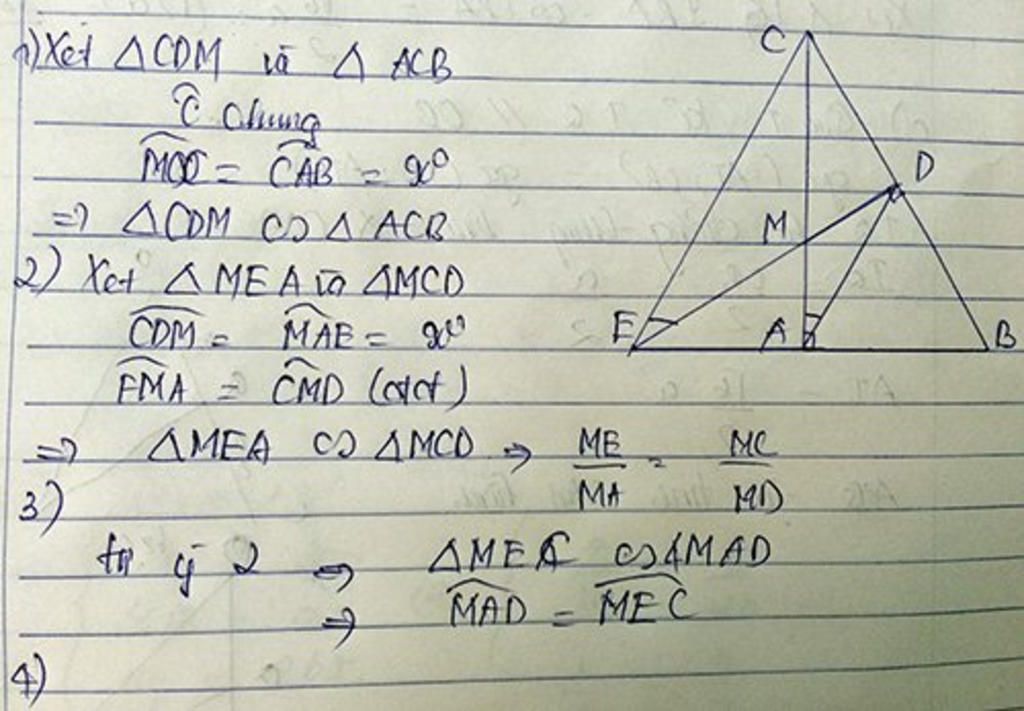 1) Xét △CDM và △ ACB
Ĉ chung
MDC = CAB = 90°
=> △CDM ∽ △ ACB
2) Xét △MEA và △MCD
CDM = MAE = 90°
EMA = CMD (đđ)
=> △MEA ∽ △MCD => ME/MA = MC/MD
3)
từ ý 2 => △MEC ∽ △MAD
=> MAD = MEC
4)
C
D
M
E
A
B